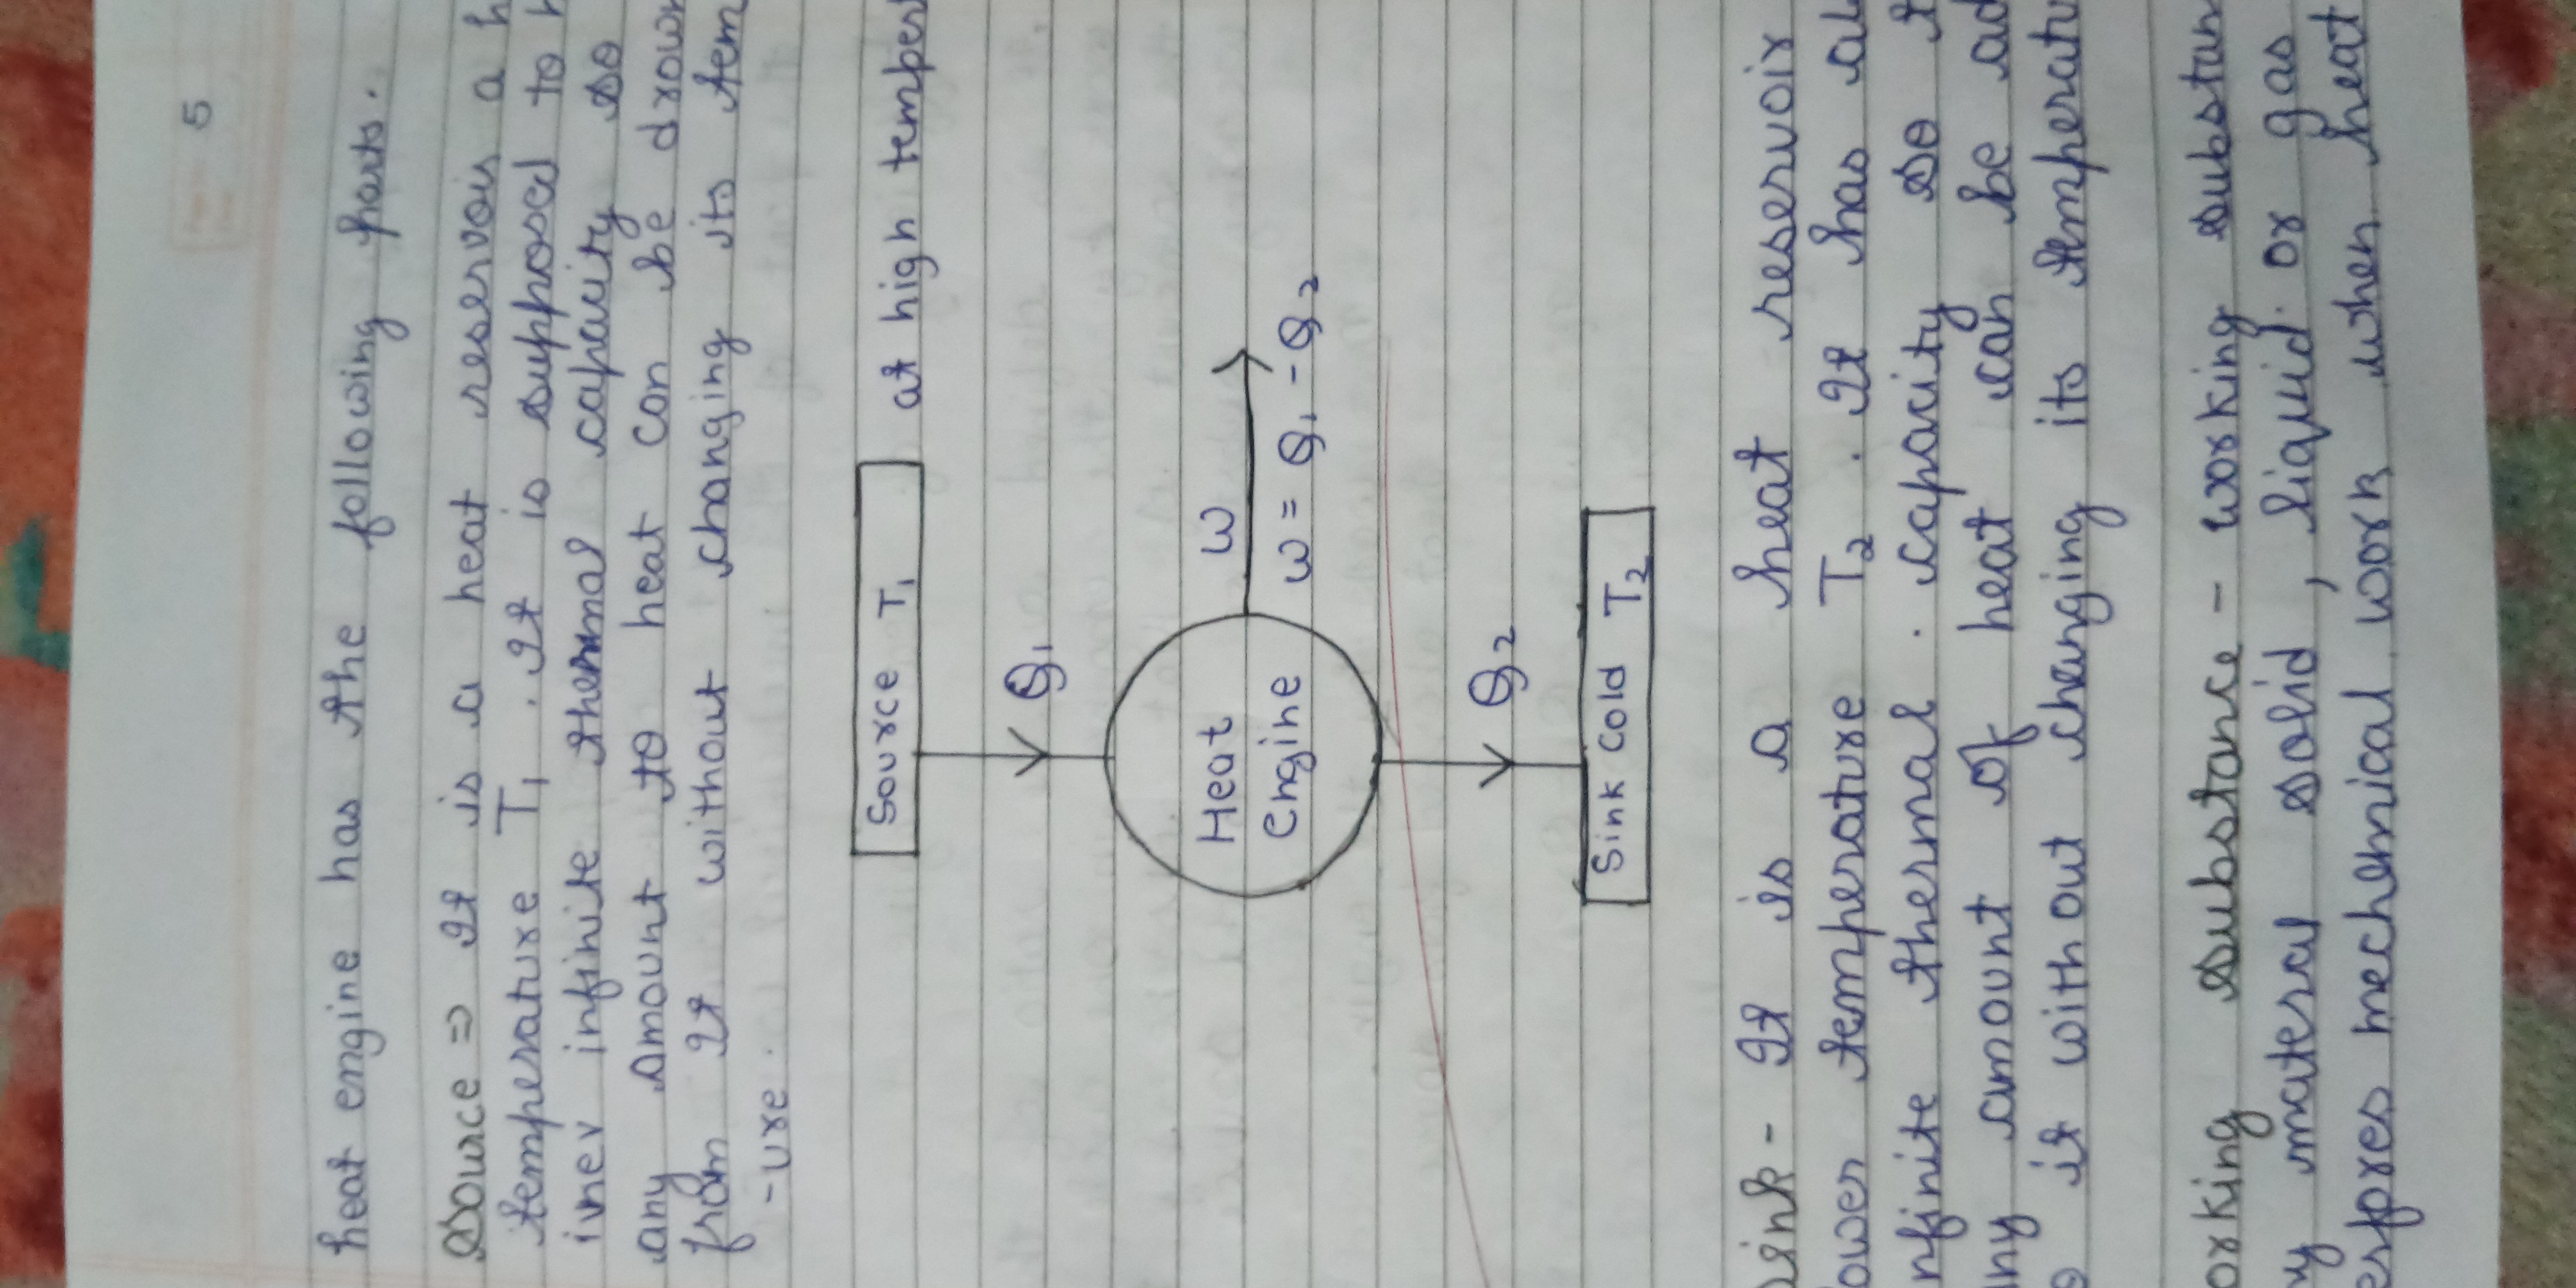 5
heat engine has the following parts.
Source => It is a heat reservois a h
temperature T1 . It is supposed to h
inev infinite thermal capacity so
any amount to heat can be drown
from It without changing its tem
-ure.
Source T1 at high temper
Q1
W
Heat
Engine
W = Q1 - Q2
Q2
Sink Cold T2
sink - It is a heat reservoir
ower temperature T2 . It has al
nfinite thermal . capacity so t
ny amount of heat can be ad
o it with out changing its temperatu
orking substance - working substan
y materal solid , liquid . or gas
erfores mechemical work when heat